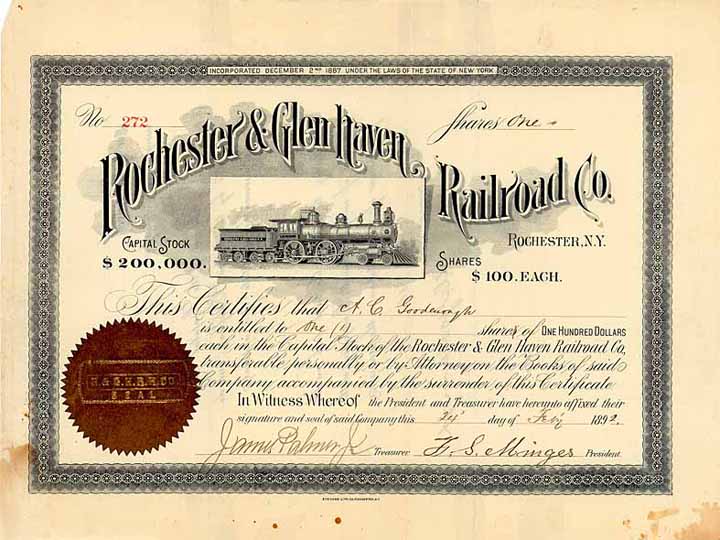 INCORPORATED DECEMBER 2ND 1887 UNDER THE LAWS OF THE STATE OF NEW YORK
No 272 Shares One
Rochester & Glen Haven
Railroad Co.
CAPITAL STOCK
$200,000.
ROCHESTER, N.Y.
SHARES
$100. EACH.
This Certifies that A. C. Goodenough
is entitled to One (1) shares of ONE HUNDRED DOLLARS
each in the Capital Stock of the Rochester & Glen Haven Railroad Co,
transferable personally or by Attorney on the Books of said
Company accompanied by the surrender of this Certificate
In Witness Whereof the President and Treasurer have hereunto affixed their
signature and seal of said Company this 24 day of Feby 1892.
James Palmer Jr Treasurer F. S. Minges President.
R. & G. H. R. R. CO
SEAL